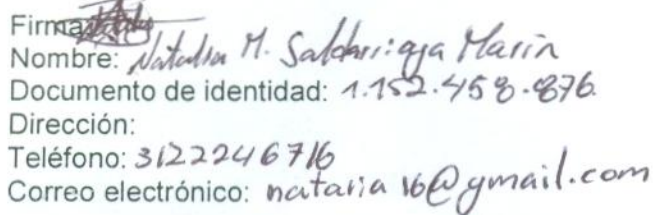 Firma:
Nombre: Natalia M. Saldarriaga Marin
Documento de identidad: 1.152.458.876
Dirección:
Teléfono: 3122246716
Correo electrónico: nataria16@gmail.com